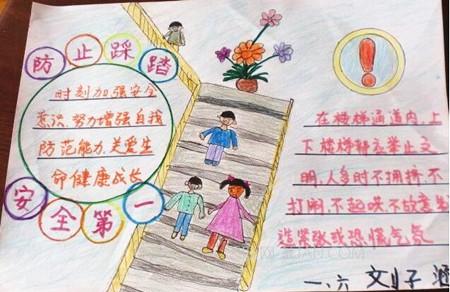 防止踩踏
时刻加强安全
意识,努力增强自我
防范能力,关爱生
命健康成长
安全第一
在楼梯通道内,上
下楼梯 举止文
明,人多时不拥挤不
打闹,不起哄不故意
造紧张或恐慌气氛
一、六 刘子涵